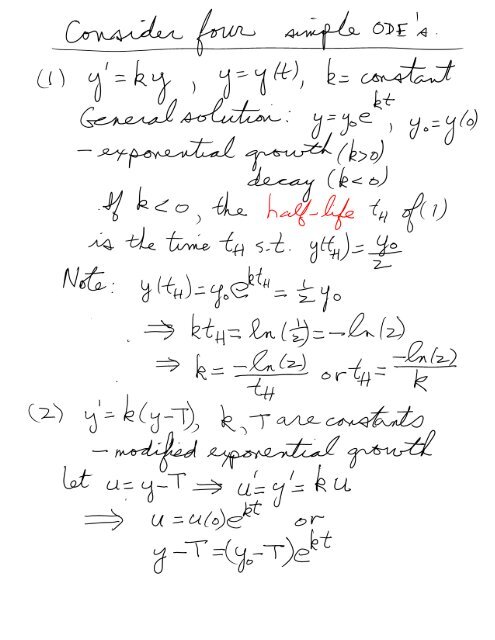 Consider four simple ODE's.
(1) y' = ky , y = y(t), k = constant
General solution: y = y₀e^{kt}, y₀ = y(0)
- exponential growth (k>0)
decay (k<0)
If k<0, the half-life t_H of (1)
is the time t_H s.t. y(t_H) = y₀/2
Note: y(t_H) = y₀e^{kt_H} = ½ y₀
⇒ kt_H = ln(½) = -ln(2)
⇒ k = -ln(2)/t_H or t_H = -ln(2)/k
(2) y' = k(y-T), k, T are constants
- modified exponential growth
Let u = y-T ⇒ u' = y' = ku
⇒ u = u(0)e^{kt} or
y-T = (y₀-T)e^{kt}